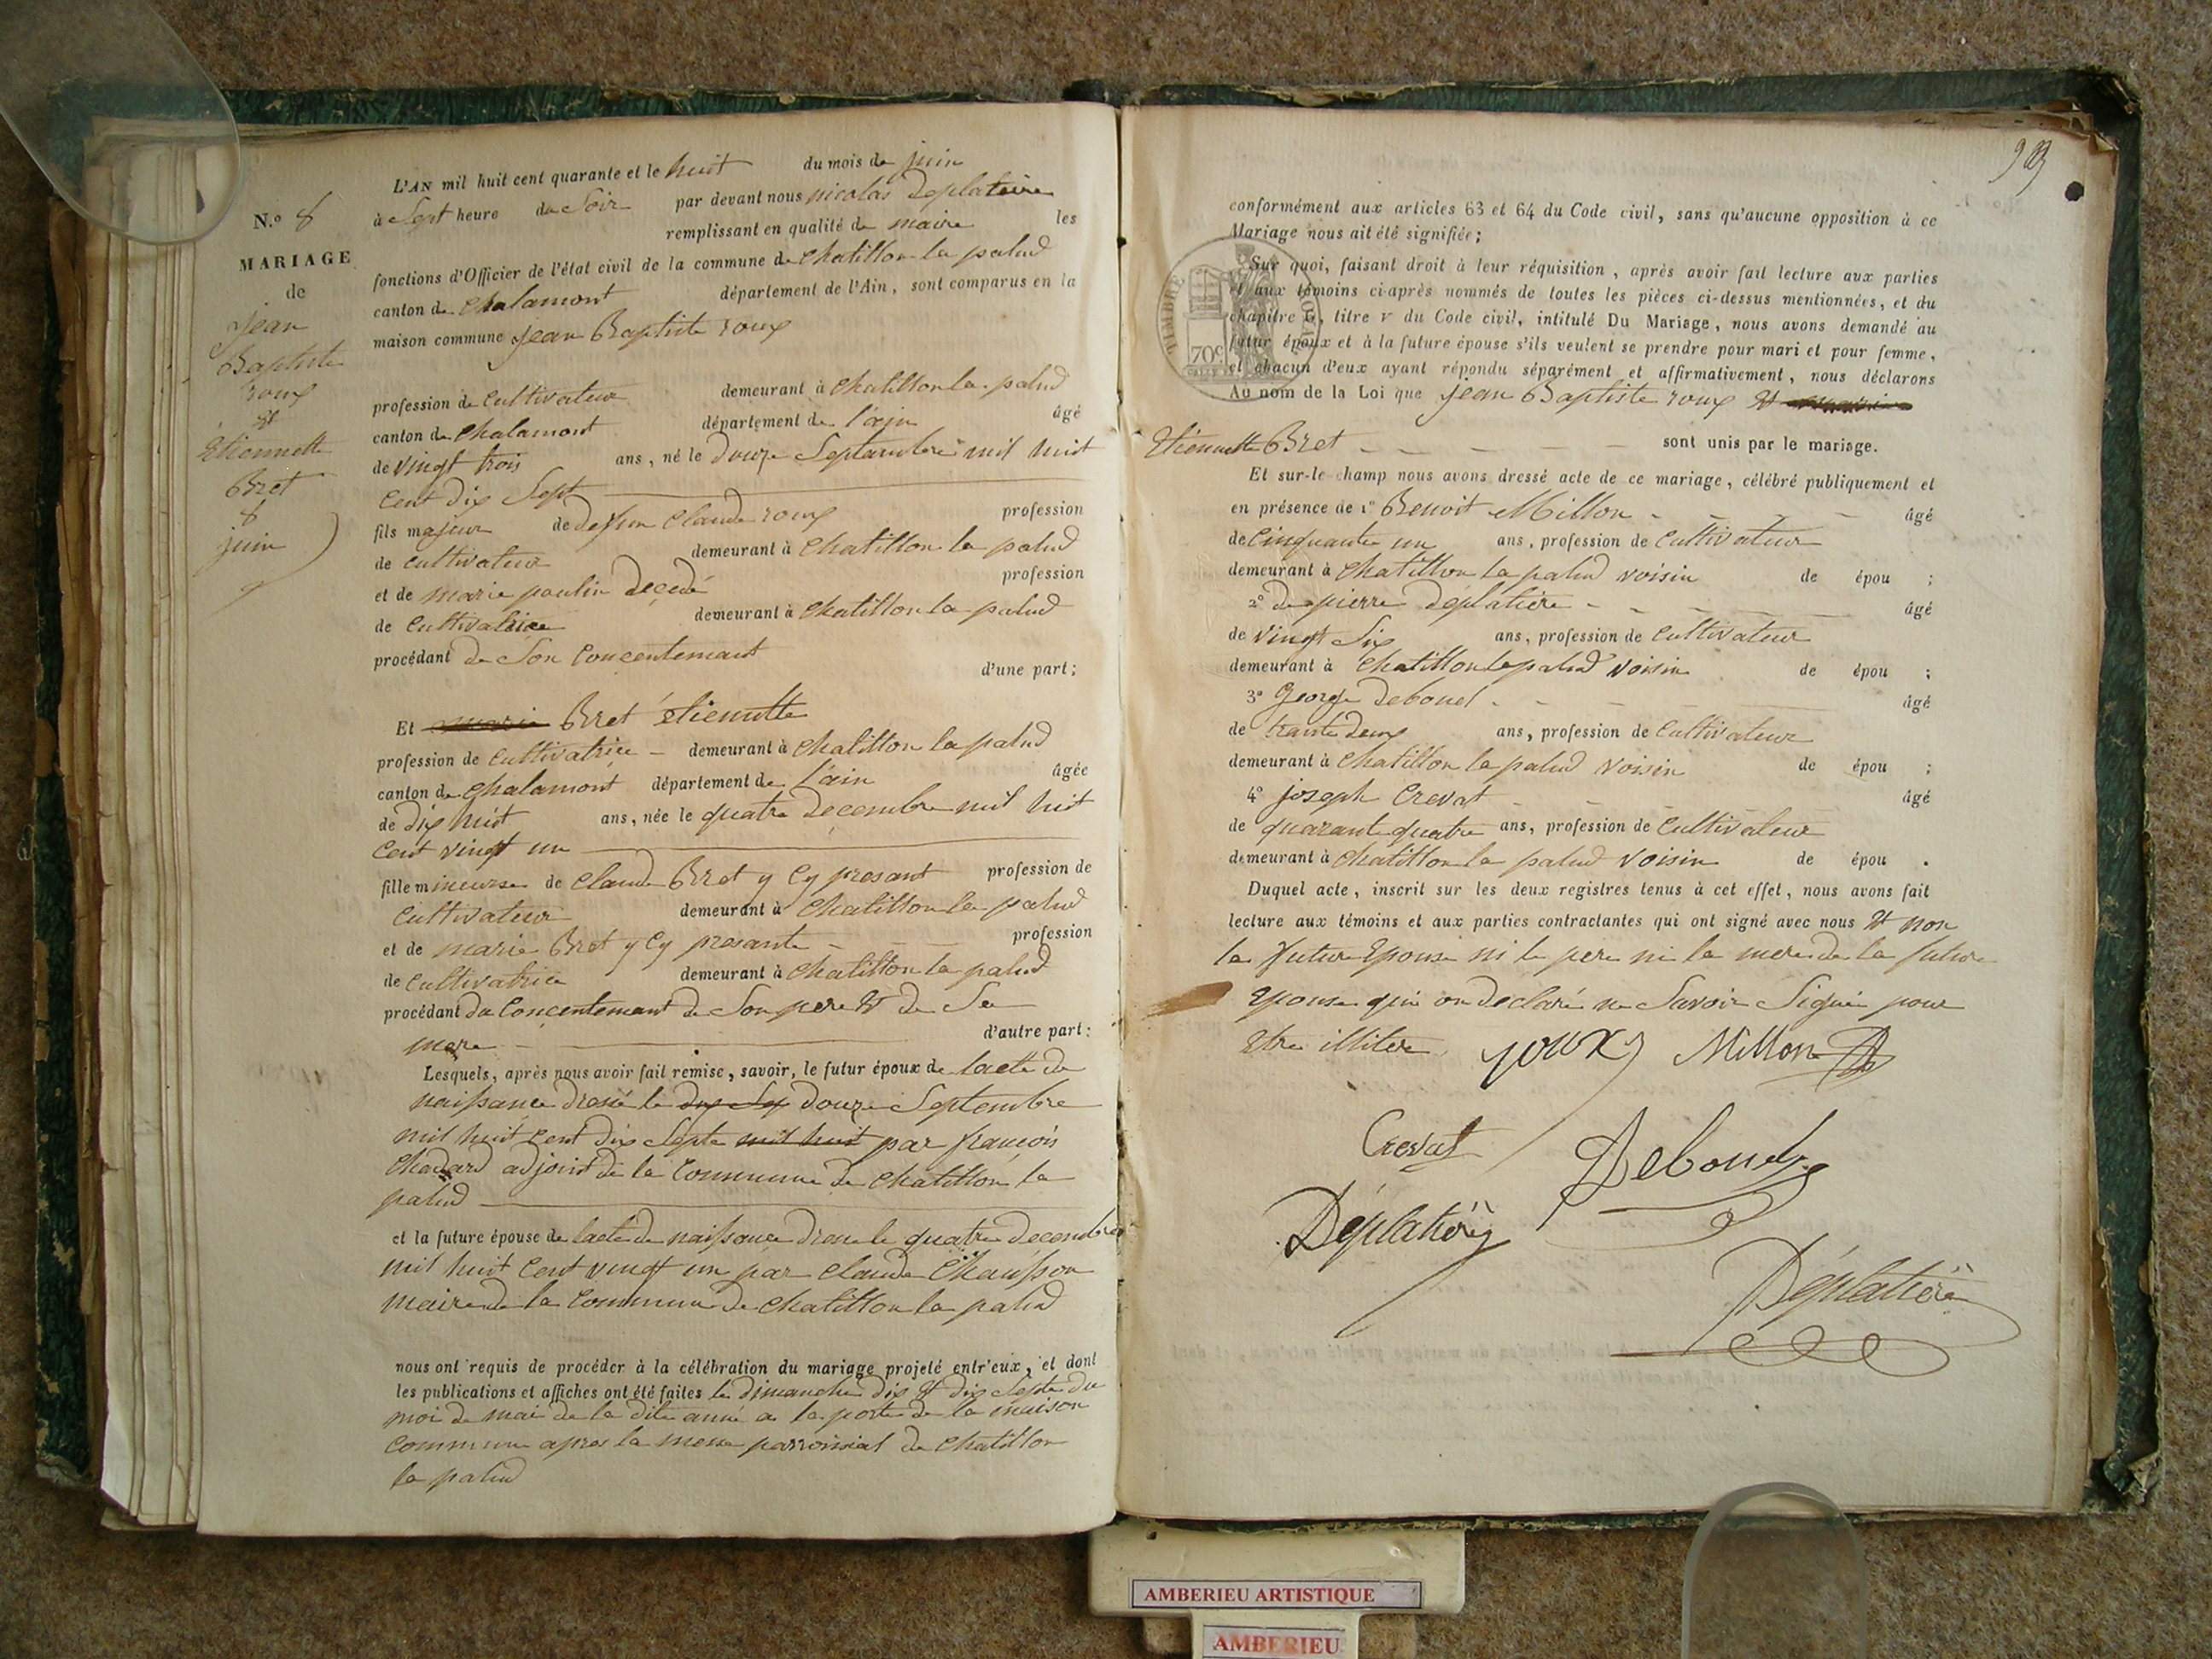 N.o 8
MARIAGE
de
jean
Baptiste
roux
et
Etiennette
Bret
8
juin
L'AN mil huit cent quarante et le huit du mois de juin
à Sept heure du Soir par devant nous nicolas Deplatiere
remplissant en qualité de maire les
fonctions d'Officier de l'état civil de la commune de chatillon la palud
canton de chalamont département de l'Ain, sont comparus en la
maison commune jean Baptiste roux
profession de Cultivateur demeurant à chatillon la palud
canton de chalamont département de l'ain âgé
de vingt trois ans, né le Douze Septambre mil huit
Cent dix Sept
fils majeur de defun Claude roux profession
de cultivateur demeurant à chatillon la palud
et de marie paulin decedé profession
de Cultivatrice demeurant à chatillon la palud
procédant de Son Concentemant
d'une part;
Et marie Bret étiennette
profession de Cultivatrice demeurant à chatillon la palud
canton de chalamont département de l'ain âgée
de dix huit ans, née le quatre Decembre mil huit
Cent vingt un
fille mineurse de claude Bret y Cy presant profession de
Cultivateur demeurant à chatillon la palud
et de marie Bret y Cy presante profession
de Cultivatrice demeurant à chatillon la palud
procédant du Concentemant de Son pere et de Sa
mere d'autre part:
Lesquels, après nous avoir fait remise, savoir, le futur époux de lacte de
naissance dressé le dix Sep douze Septembre
mil huit Cent dix Septe mil huit par françois
adjoint de la Commune de chatillon la
palud
et la future épouse de lacte de naissance dressé le quatre decembre
mil huit Cent vingt un par claude Chausson
maire de la Commune de chatillon la palud
nous ont requis de procéder à la célébration du mariage projeté entr'eux, et dont
les publications et affiches ont été faites le dimanche dix et dix Septe du
moi de mai de la dite anné a la porte de la maison
Commune apres la messe parroissial de chatillon
la palud
conformément aux articles 63 et 64 du Code civil, sans qu'aucune opposition à ce
Mariage nous ait été signifiée;
TIMBRE ROYAL
70c
Sur quoi, faisant droit à leur réquisition, après avoir fait lecture aux parties
et aux témoins ci-après nommés de toutes les pièces ci-dessus mentionnées, et du
chapitre 6, titre v du Code civil, intitulé Du Mariage, nous avons demandé au
futur époux et à la future épouse s'ils veulent se prendre pour mari et pour femme,
et chacun d'eux ayant répondu séparément et affirmativement, nous déclarons
Au nom de la Loi que jean Baptiste roux et marie
Etiennette Bret sont unis par le mariage.
Et sur-le-champ nous avons dressé acte de ce mariage, célébré publiquement et
en présence de 1o Benoit Millon âgé
de Cinquante un ans, profession de Cultivateur
demeurant à chatillon la palud voisin de épou ;
2o De pierre deplatiere âgé
de vingt Six ans, profession de Cultivateur
demeurant à chatillon la palud voisin de épou ;
3o George Debouel âgé
de trante deux ans, profession de Cultivateur
demeurant à chatillon la palud voisin de épou ;
4o joseph Crevat âgé
de quarante quatre ans, profession de Cultivateur
demeurant à chatillon la palud voisin de épou .
Duquel acte, inscrit sur les deux registres tenus à cet effet, nous avons fait
lecture aux témoins et aux parties contractantes qui ont signé avec nous et non
la future Epouse ni le pere ni la mere de la future
Epouse qui on declaré ne Savoir Signie pour
Etre illiter roux Millon
Crevat
Déplatière
Déplatière
AMBERIEU ARTISTIQUE
AMBERIEU